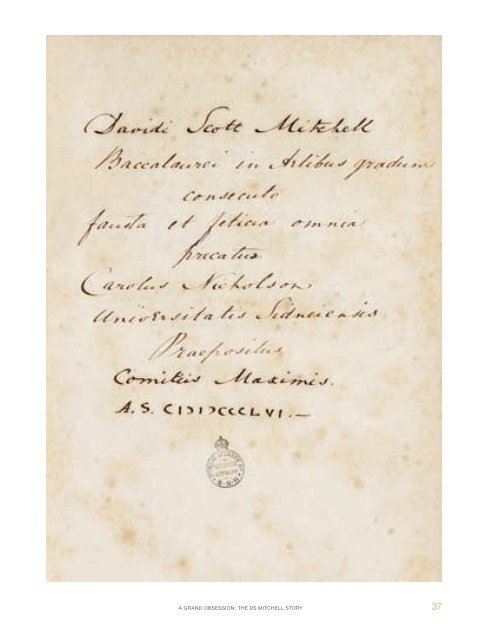 Davidi Scott Mitchell
Baccalaurei in Artibus gradum
consecuto
fausta et felicia omnia
precatus
Carolus Nicholson
Universitatis Sidneiensis
Praepositus
Comitiis Maximis.
A.S. CIƆIƆCCCLVI.—
A GRAND OBSESSION: THE DS MITCHELL STORY
37